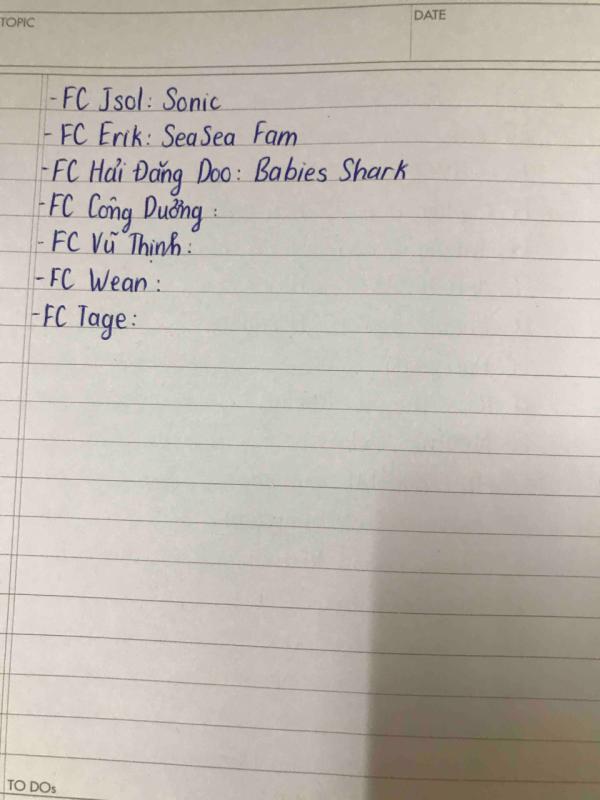 TOPIC
DATE
-FC Jsol: Sonic
- FC Erik: SeaSea Fam
-FC Hải Đăng Doo: Babies Shark
-FC Công Dưỡng :
- FC Vũ Thịnh:
-FC Wean :
-FC Tage:
TO DOs